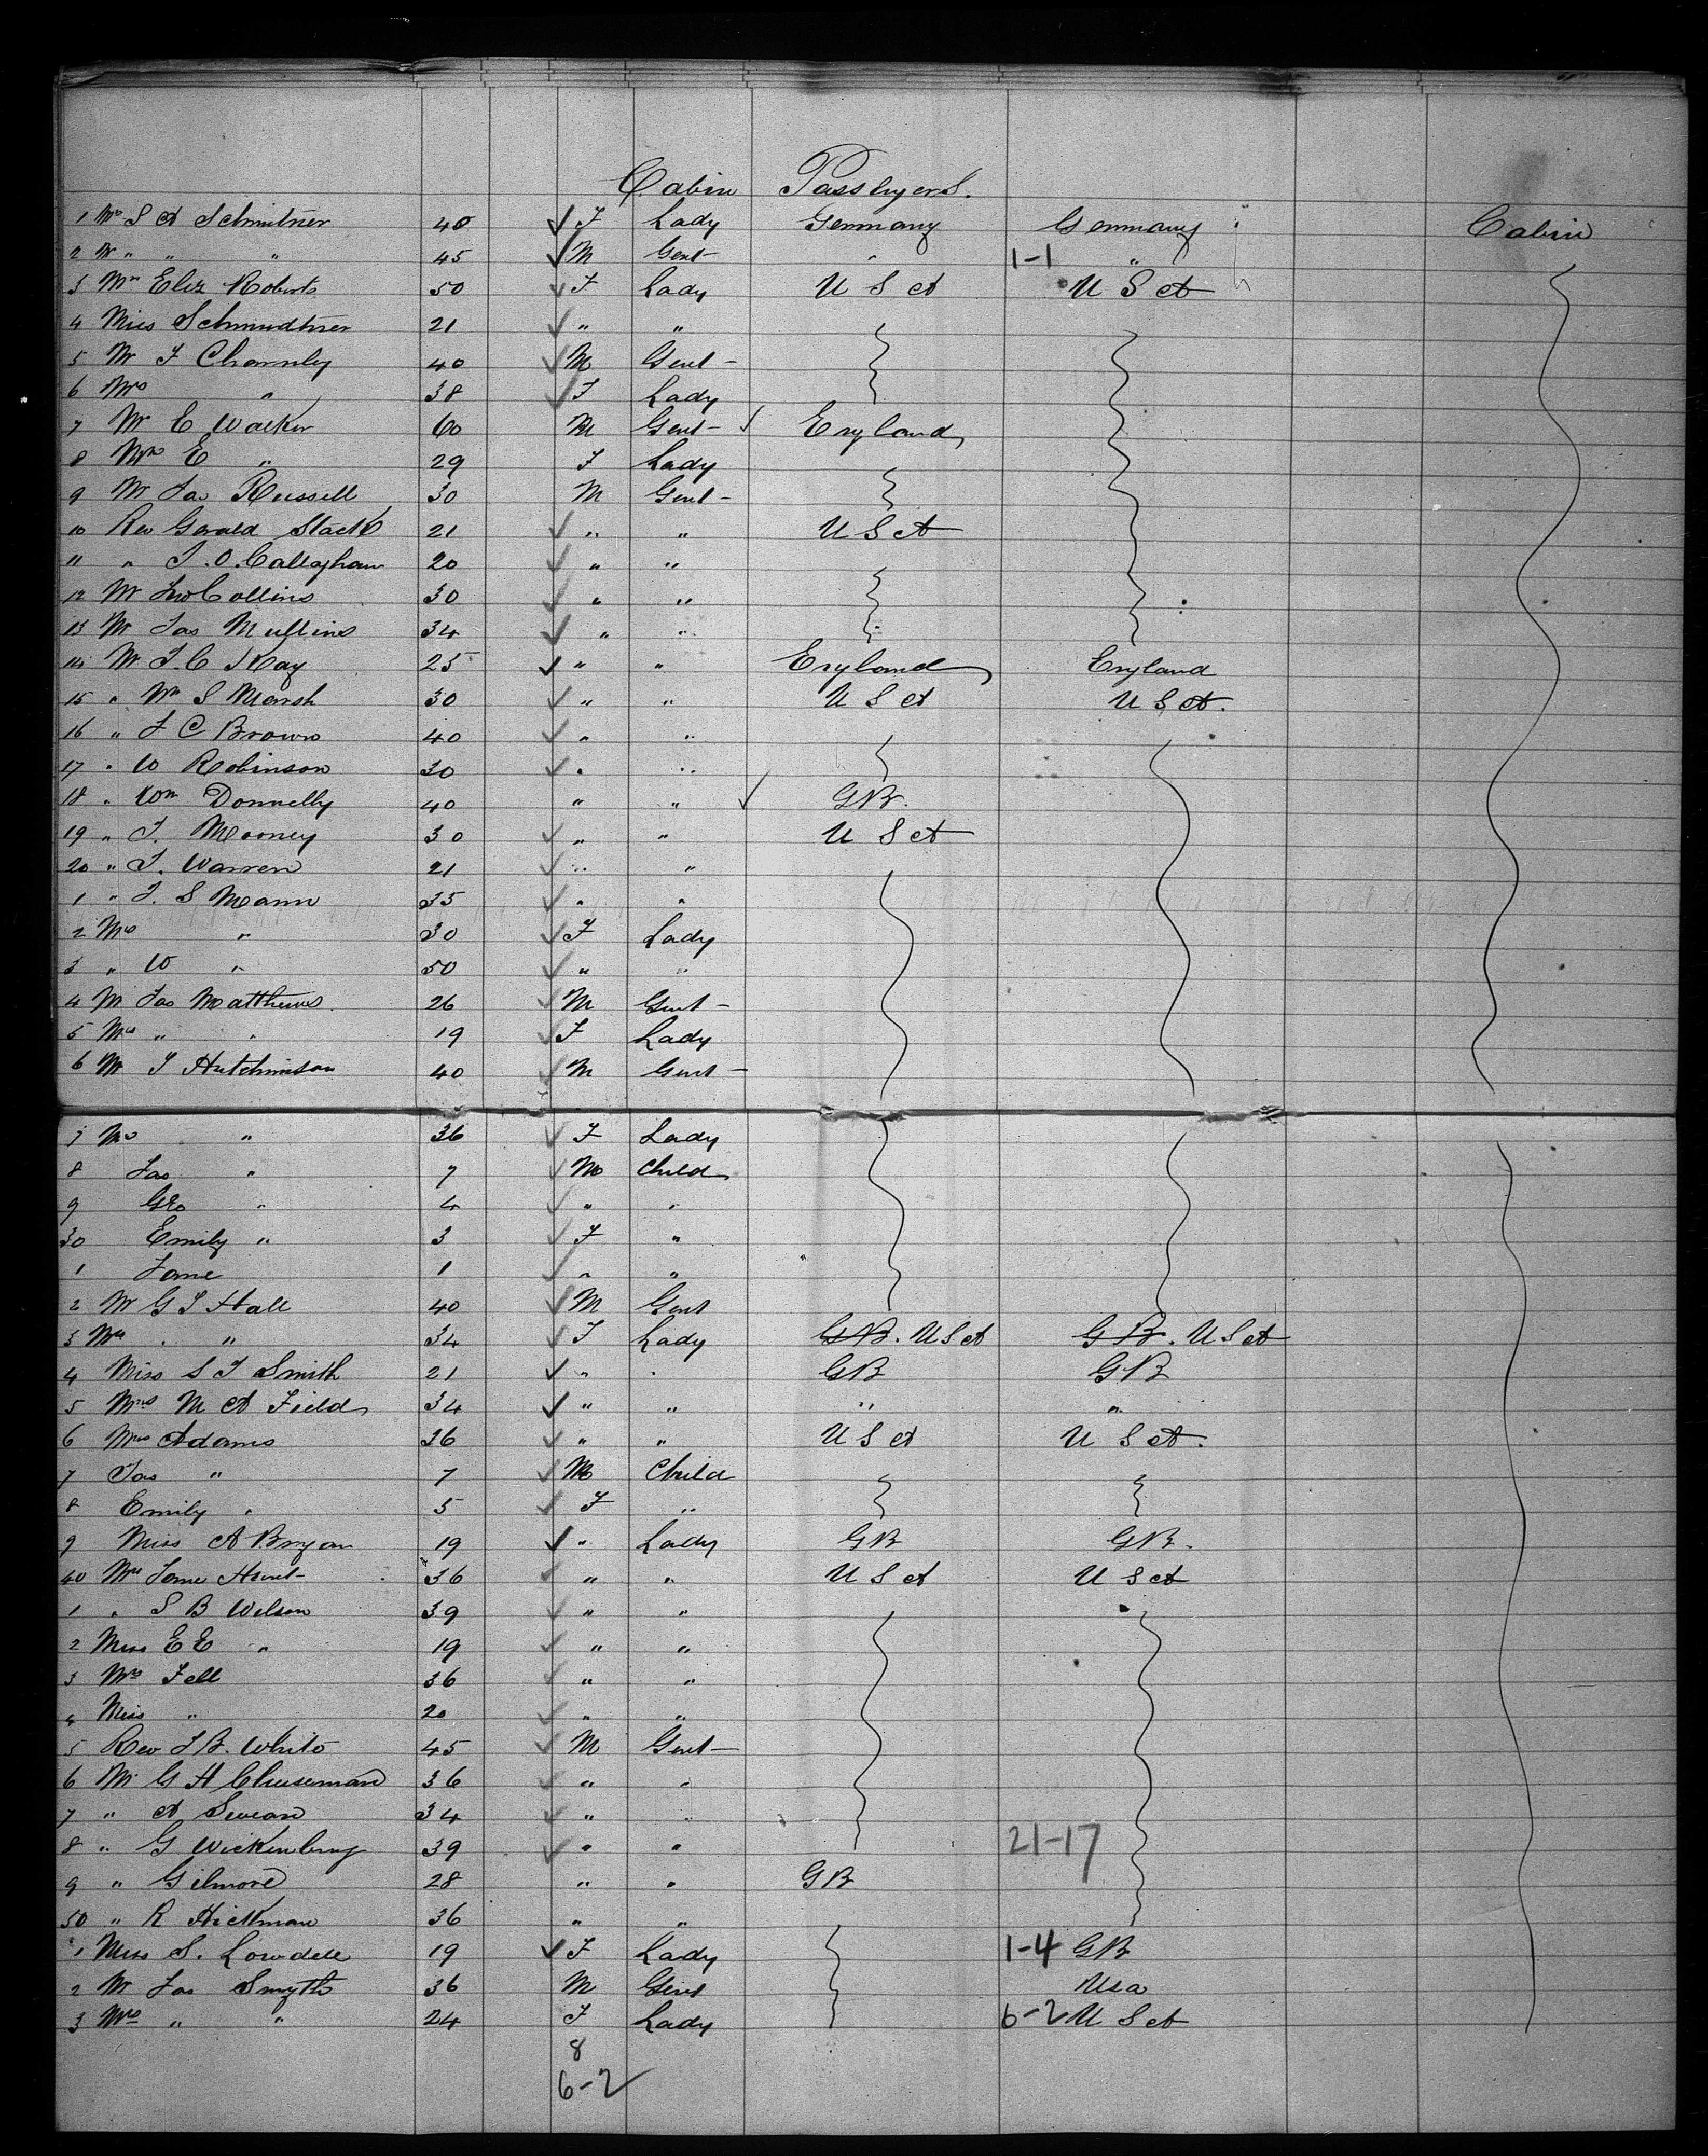 Cabin Passengers.
1 Mrs S A Schmitner 40 F Lady Germany Germany Cabin
2 Mr " " 45 M Gent " 1-1 "
3 Mrs Eliz Roberts 50 F Lady U S A U S A
4 Miss Schmidtner 21 " "
5 Mr F Charnley 40 M Gent
6 Mrs " 38 F Lady
7 Mr E Walker 60 M Gent England
8 Mrs E " 29 F Lady
9 Mr Jas Russell 30 M Gent
10 Rev Gerald Stack 21 " " U S A
11 " J. O. Callaghan 20 " "
12 Mr Collins 30 " "
13 Mr Jas Mullins 34 " "
14 Mr J. C Kay 25 " " England England
15 " Wm S Marsh 30 " " U S A U S A.
16 " J C Brown 40 " "
17 " W Robinson 30 " "
18 " Wm Donnelly 40 " " GB.
19 " J. Mooney 30 " " U S A
20 " J. Warren 21 " "
1 " J. S Mann 35 " "
2 Mrs " 30 F Lady
3 " W " 50 " "
4 Mr Jas Matthews 26 M Gent
5 Mrs " " 19 F Lady
6 Mr J Hutchinson 40 M Gent
7 Mrs " 36 F Lady
8 Jas " 7 M Child
9 Geo " 4 " "
30 Emily " 3 F "
1 Jane 1 " "
2 Mr G S Hall 40 M Gent
3 Mrs " " 34 F Lady GB. U S A GB. U S A
4 Miss S J Smith 21 " " GB GB
5 Mrs M A Field 34 " " " "
6 Mrs Adams 36 " " U S A U S A.
7 Jas " 7 M Child
8 Emily " 5 F "
9 Miss A Bryan 19 " Lady GB GB.
40 Mrs Jane Hunt 36 " " U S A U S A
1 " S B Wilson 39 " "
2 Miss E E " 19 " "
3 Mrs Fell 36 " "
4 Miss " 20 " "
5 Rev J B. White 45 M Gent
6 Mr G H Cheeseman 36 " "
7 " A Swan 34 " "
8 " G Wickenberg 39 " " 21-17
9 " Gilmore 28 " " GB
50 " R Hickman 36 " "
1 Miss S. Lowdell 19 F Lady 1-4 GB
2 Mr Jas Smyth 36 M Gent Usa
3 Mrs " " 24 F Lady 6-2 U S A
8
6-2